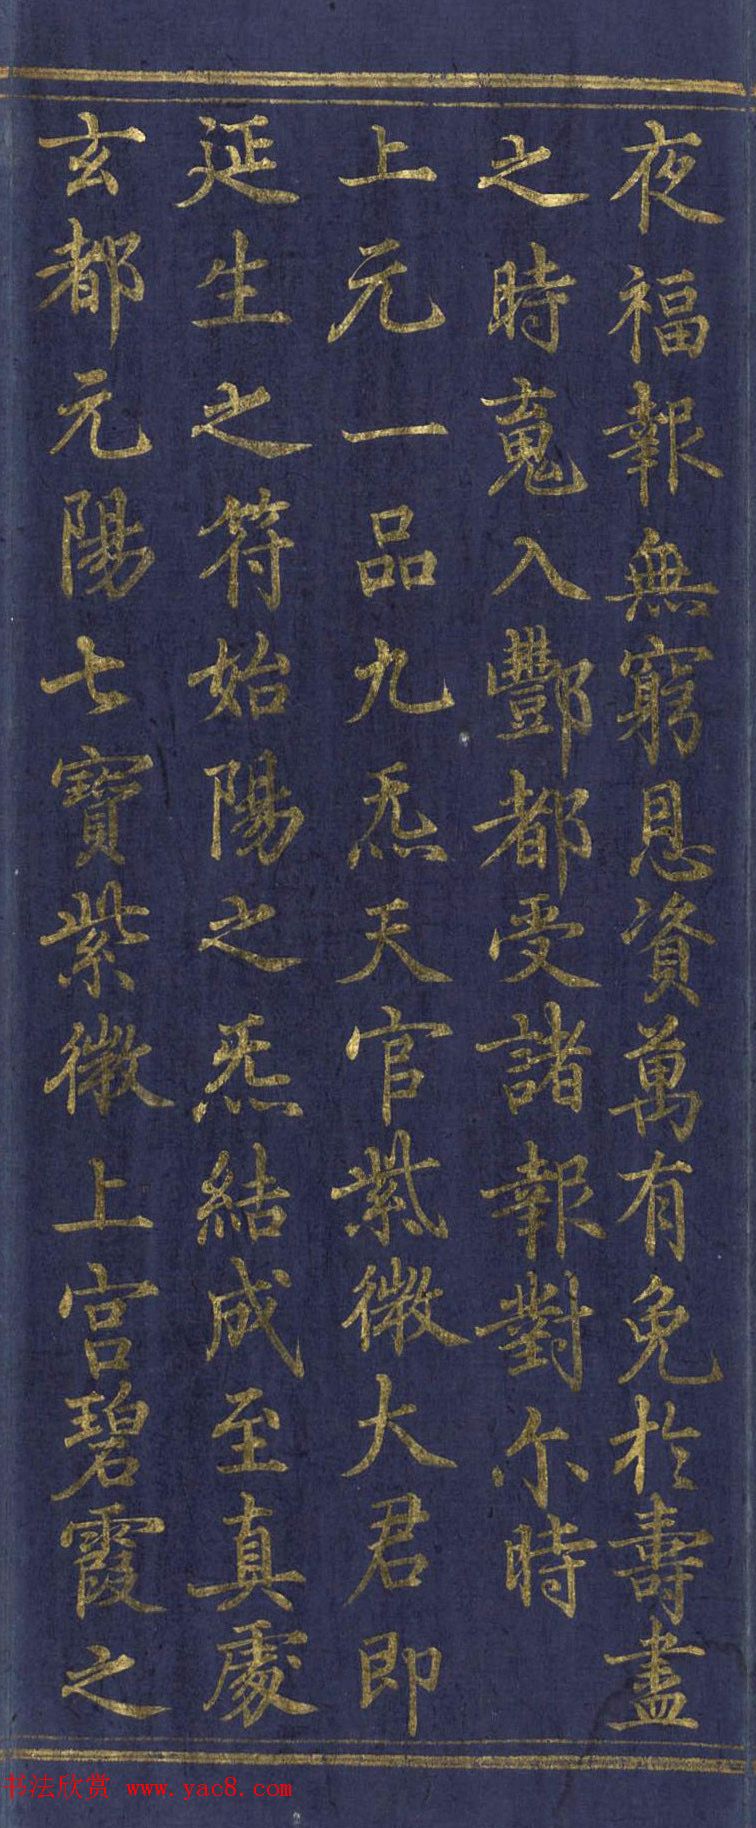 夜福報無窮恩資萬有免於壽盡
之時蒐入酆都受諸報對尓時
上元一品九炁天官紫微大君即
延生之符始陽之炁結成至真處
玄都元陽七寶紫微上宮碧霞之
书法欣赏 www.yac8.com